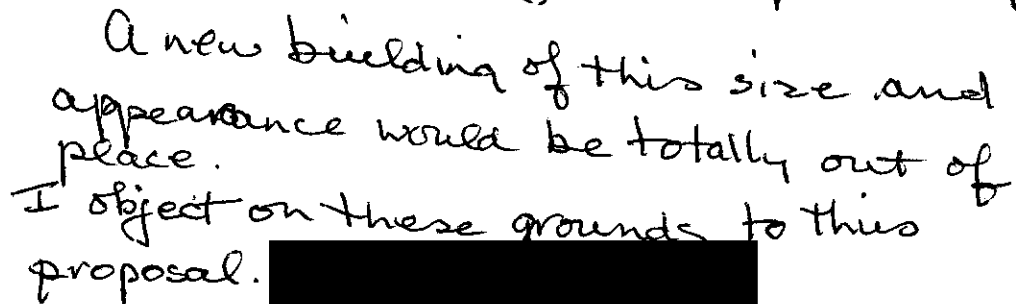 A new building of this size and
appearance would be totally out of
place.
I object on these grounds to this
proposal.